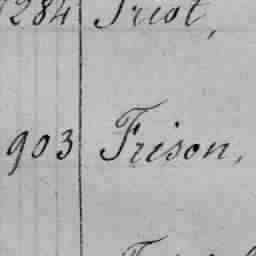 1284 Friot,
903 Frison,